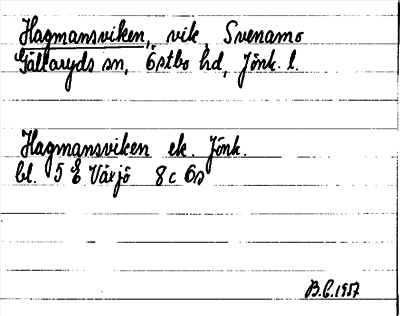 Hagmansviken, vik, Svenamo
Gällaryds sn, Östbo hd, Jönk. l.
Hagmansviken ek. Jönk.
bl. 5 E Växjö 8 c
B.C. 1957